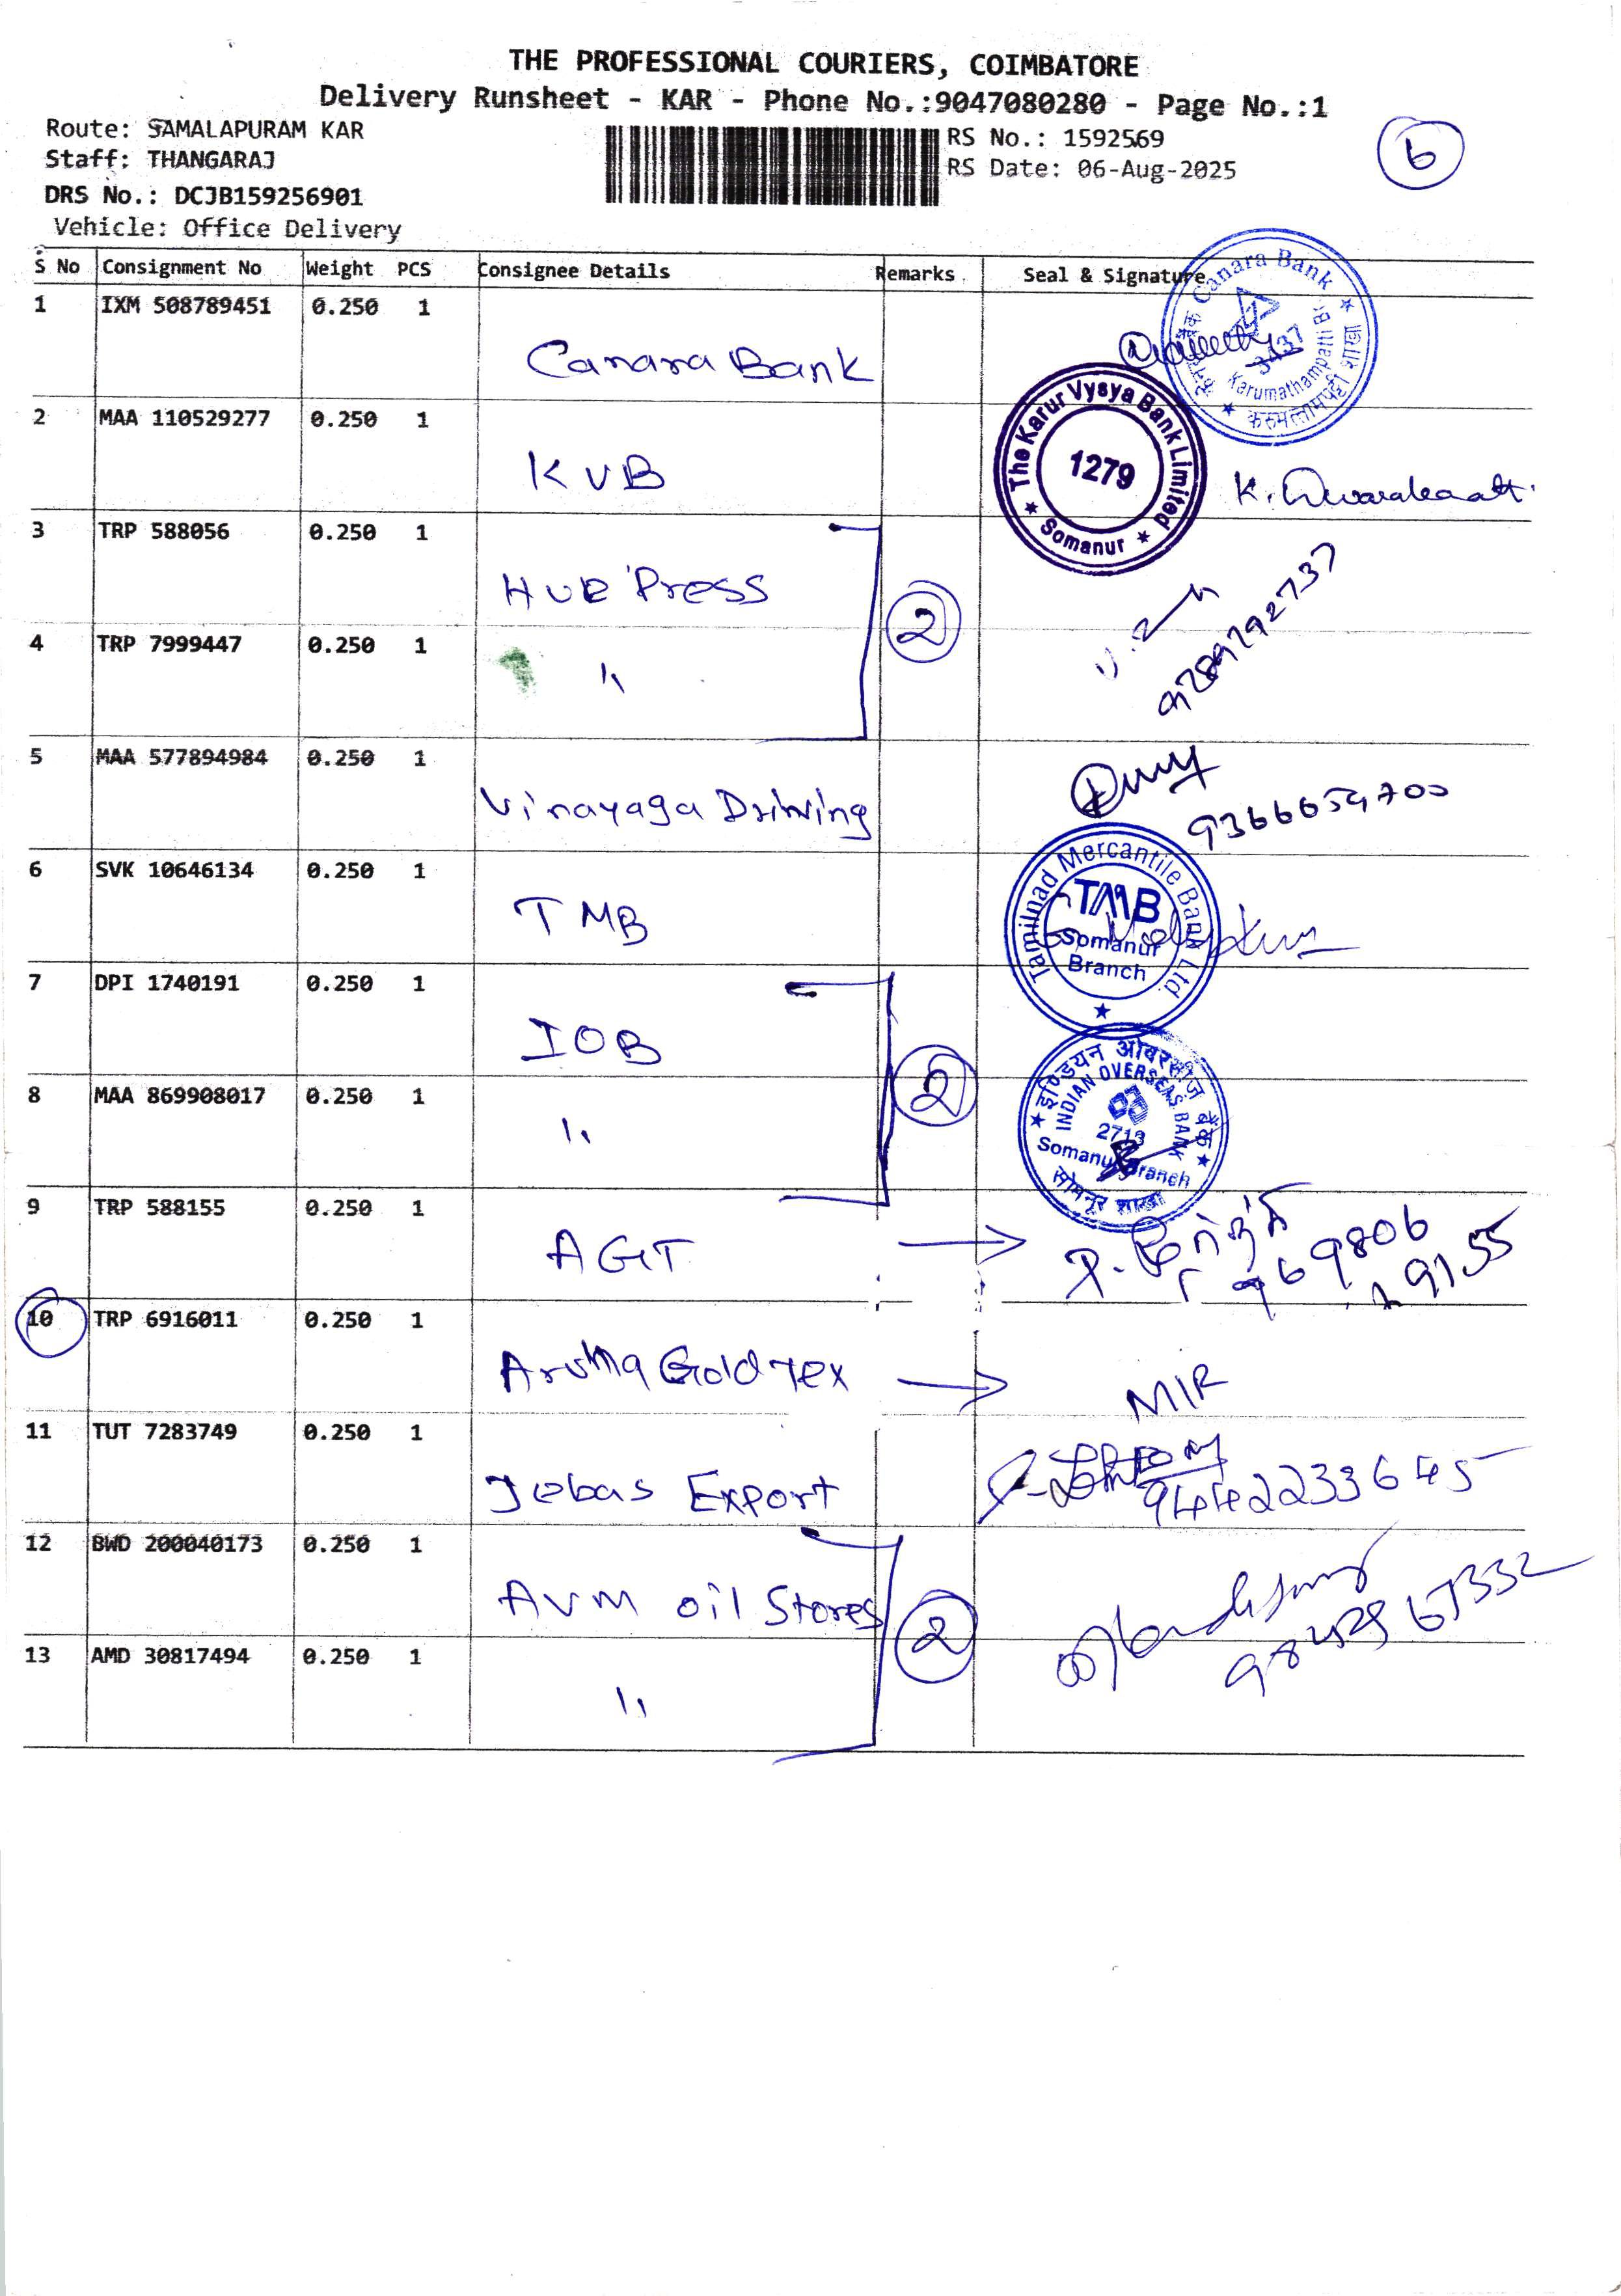 THE PROFESSIONAL COURIERS, COIMBATORE
Delivery Runsheet - KAR - Phone No.:9047080280 - Page No.:1
Route: SAMALAPURAM KAR
RS No.: 1592569
6
Staff: THANGARAJ
RS Date: 06-Aug-2025
DRS No.: DCJB159256901
Vehicle: Office Delivery
S No Consignment No Weight PCS Consignee Details Remarks Seal & Signature
1 IXM 508789451 0.250 1 Canara Bank
Canara Bank
Karumathampatti
2 MAA 110529277 0.250 1 KVB
The Karur Vysya Bank Limited
1279
Somanur
3 TRP 588056 0.250 1 HUE Press
2
4 TRP 7999447 0.250 1 "
5 MAA 577894984 0.250 1 Vinayaga Driving
9366659700
6 SVK 10646134 0.250 1 TMB
Tamilnad Mercantile Bank Ltd.
TMB
Somanur
Branch
7 DPI 1740191 0.250 1 IOB
2
8 MAA 869908017 0.250 1 "
इण्डियन ओवरसीज बैंक
INDIAN OVERSEAS BANK
2713
Somanur Branch
सोमनूर शाखा
9 TRP 588155 0.250 1 AGT
969806
19155
10 TRP 6916011 0.250 1 Aruna Gold Tex MIR
11 TUT 7283749 0.250 1 Jebas Export
9442233645
12 BWD 200040173 0.250 1 AVM oil Stores
2
13 AMD 30817494 0.250 1 "